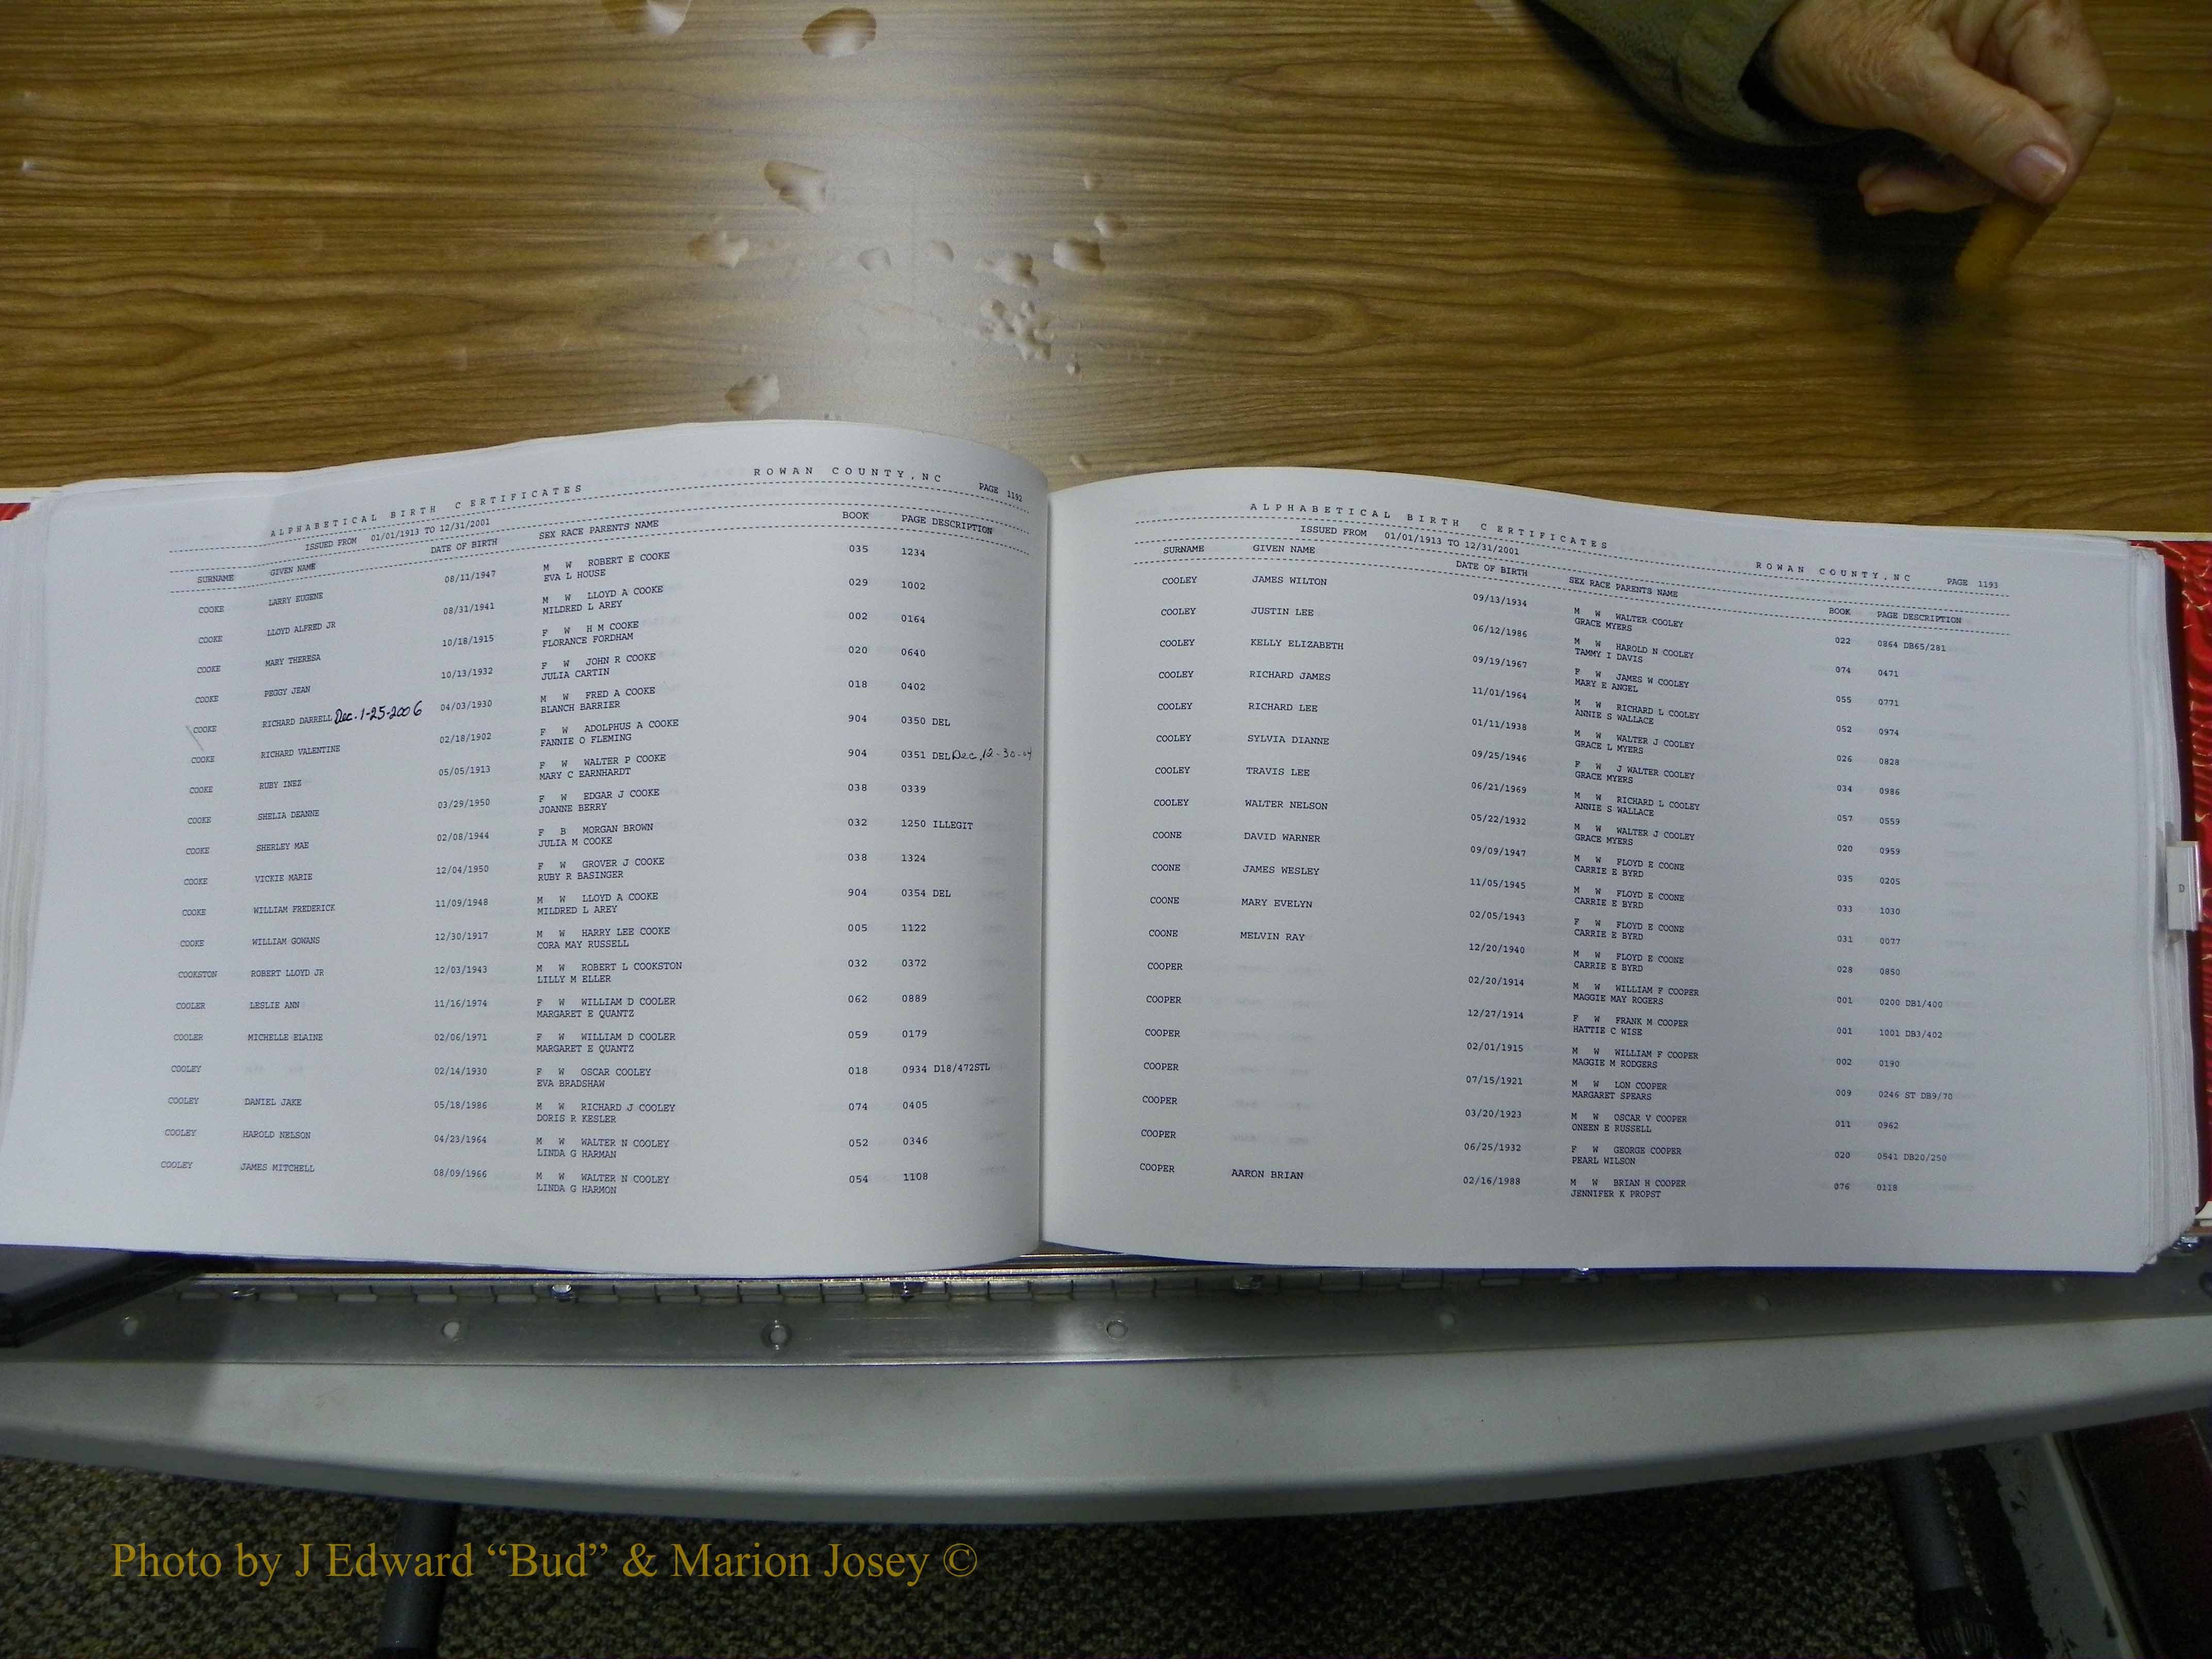 ALPHABETICAL BIRTH CERTIFICATES ROWAN COUNTY, NC PAGE 1192
ISSUED FROM 01/01/1913 TO 12/31/2001
SURNAME GIVEN NAME DATE OF BIRTH SEX RACE PARENTS NAME BOOK PAGE DESCRIPTION
COOKE LARRY EUGENE 08/11/1947 M W ROBERT E COOKE 035 1234
EVA L HOUSE
COOKE LLOYD ALFRED JR 08/31/1941 M W LLOYD A COOKE 029 1002
MILDRED L AREY
COOKE MARY THERESA 10/18/1915 F W H M COOKE 002 0164
FLORANCE FORDHAM
COOKE PEGGY JEAN 10/13/1932 F W JOHN R COOKE 020 0640
JULIA CARTIN
COOKE RICHARD DARRELL Dec. 1-25-2006 04/03/1930 M W FRED A COOKE 018 0402
BLANCH BARRIER
COOKE RICHARD VALENTINE 02/18/1902 F W ADOLPHUS A COOKE 904 0350 DEL
FANNIE O FLEMING
COOKE RUBY INEZ 05/05/1913 F W WALTER P COOKE 904 0351 DEL Dec. 12-30-04
MARY C EARNHARDT
COOKE SHELIA DEANNE 03/29/1950 F W EDGAR J COOKE 038 0339
JOANNE BERRY
COOKE SHERLEY MAE 02/08/1944 F B MORGAN BROWN 032 1250 ILLEGIT
JULIA M COOKE
COOKE VICKIE MARIE 12/04/1950 F W GROVER J COOKE 038 1324
RUBY R BASINGER
COOKE WILLIAM FREDERICK 11/09/1948 M W LLOYD A COOKE 904 0354 DEL
MILDRED L AREY
COOKE WILLIAM GOWANS 12/30/1917 M W HARRY LEE COOKE 005 1122
CORA MAY RUSSELL
COOKSTON ROBERT LLOYD JR 12/03/1943 M W ROBERT L COOKSTON 032 0372
LILLY M ELLER
COOLER LESLIE ANN 11/16/1974 F W WILLIAM D COOLER 062 0889
MARGARET E QUANTZ
COOLER MICHELLE ELAINE 02/06/1971 F W WILLIAM D COOLER 059 0179
MARGARET E QUANTZ
COOLEY 02/14/1930 F W OSCAR COOLEY 018 0934 D18/472STL
EVA BRADSHAW
COOLEY DANIEL JAKE 05/18/1986 M W RICHARD J COOLEY 074 0405
DORIS R KESLER
COOLEY HAROLD NELSON 04/23/1964 M W WALTER N COOLEY 052 0346
LINDA G HARMAN
COOLEY JAMES MITCHELL 08/09/1966 M W WALTER N COOLEY 054 1108
LINDA G HARMON
ALPHABETICAL BIRTH CERTIFICATES ROWAN COUNTY, NC PAGE 1193
ISSUED FROM 01/01/1913 TO 12/31/2001
SURNAME GIVEN NAME DATE OF BIRTH SEX RACE PARENTS NAME BOOK PAGE DESCRIPTION
COOLEY JAMES WILTON 09/13/1934 M W WALTER COOLEY 022 0864 DB65/281
GRACE MYERS
COOLEY JUSTIN LEE 06/12/1986 M W HAROLD N COOLEY 074 0471
TAMMY I DAVIS
COOLEY KELLY ELIZABETH 09/19/1967 F W JAMES W COOLEY 055 0771
MARY E ANGEL
COOLEY RICHARD JAMES 11/01/1964 M W RICHARD L COOLEY 052 0974
ANNIE S WALLACE
COOLEY RICHARD LEE 01/11/1938 M W WALTER J COOLEY 026 0828
GRACE L MYERS
COOLEY SYLVIA DIANNE 09/25/1946 F W J WALTER COOLEY 034 0986
GRACE MYERS
COOLEY TRAVIS LEE 06/21/1969 M W RICHARD L COOLEY 057 0559
ANNIE S WALLACE
COOLEY WALTER NELSON 05/22/1932 M W WALTER J COOLEY 020 0959
GRACE MYERS
COONE DAVID WARNER 09/09/1947 M W FLOYD E COONE 035 0205
CARRIE E BYRD
COONE JAMES WESLEY 11/05/1945 M W FLOYD E COONE 033 1030
CARRIE E BYRD
COONE MARY EVELYN 02/05/1943 F W FLOYD E COONE 031 0077
CARRIE E BYRD
COONE MELVIN RAY 12/20/1940 M W FLOYD E COONE 028 0850
CARRIE E BYRD
COOPER 02/20/1914 M W WILLIAM F COOPER 001 0200 DB1/400
MAGGIE MAY ROGERS
COOPER 12/27/1914 F W FRANK M COOPER 001 1001 DB3/402
HATTIE C WISE
COOPER 02/01/1915 M W WILLIAM F COOPER 002 0190
MAGGIE M RODGERS
COOPER 07/15/1921 M W LON COOPER 009 0246 ST DB9/70
MARGARET SPEARS
COOPER 03/20/1923 M W OSCAR V COOPER 011 0962
ONEEN E RUSSELL
COOPER 06/25/1932 F W GEORGE COOPER 020 0541 DB20/250
PEARL WILSON
COOPER AARON BRIAN 02/16/1988 M W BRIAN H COOPER 076 0118
JENNIFER K PROPST
D
Photo by J Edward “Bud” & Marion Josey ©